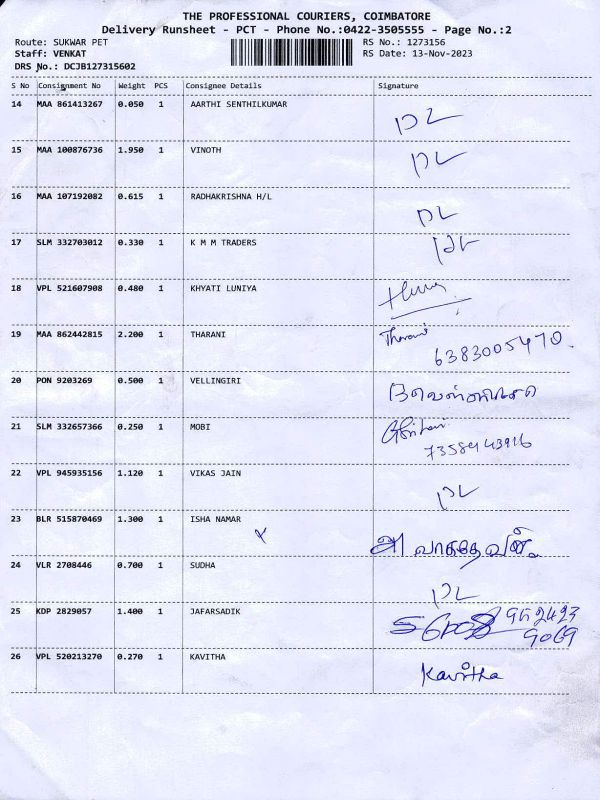 THE PROFESSIONAL COURIERS, COIMBATORE
Delivery Runsheet - PCT - Phone No.:0422-3505555 - Page No.:2
Route: SUKWAR PET RS No.: 1273156
Staff: VENKAT RS Date: 13-Nov-2023
DRS No.: DCJB127315602
S No Consignment No Weight PCS Consignee Details Signature
14 MAA 861413267 0.050 1 AARTHI SENTHILKUMAR
DL
15 MAA 100876736 1.950 1 VINOTH
DL
16 MAA 107192082 0.615 1 RADHAKRISHNA H/L
DL
17 SLM 332703012 0.330 1 K M M TRADERS
DL
18 VPL 521607908 0.480 1 KHYATI LUNIYA
19 MAA 862442815 2.200 1 THARANI
Tharani
6383005470
20 PON 9203269 0.500 1 VELLINGIRI
21 SLM 332657366 0.250 1 MOBI
7358443916
22 VPL 945935156 1.120 1 VIKAS JAIN
DL
23 BLR 515870469 1.300 1 ISHA NAMAR
அ வாசுதேவன்.
24 VLR 2708446 0.700 1 SUDHA
DL
25 KDP 2829057 1.400 1 JAFARSADIK
952423
9069
26 VPL 520213270 0.270 1 KAVITHA
Kavitha